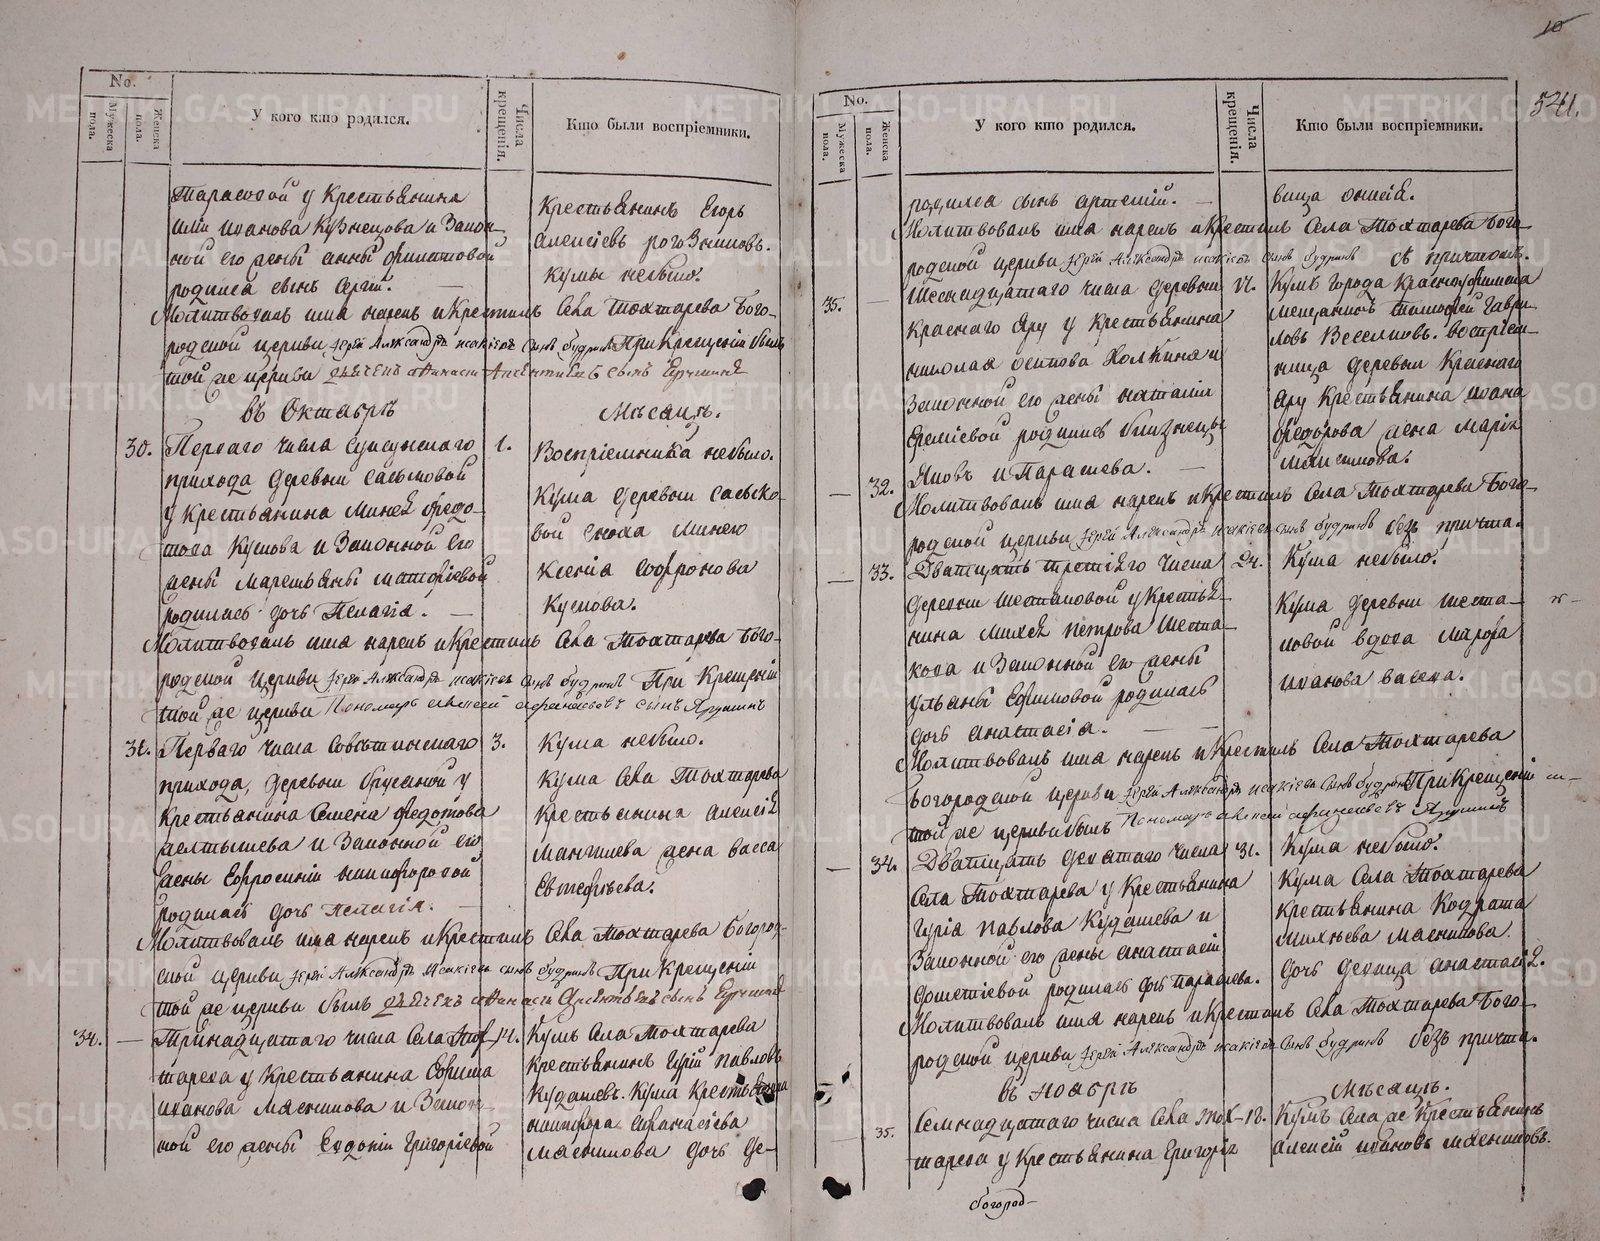 10
541.
No.
Мужеска пола.
Женска пола.
У кого кто родился.
Числа крещенія.
Кто были воспріемники.
Тарасовой у Крестьянина
Иванова Кузнецова и Закон-
ной его жены Анны Филатовой
родился сынъ Сергій.
Крестьянинъ Егоръ
Алексіевъ Рогозниковъ.
Кумы небыло.
Молитвовалъ имя нарекъ и Крестилъ Села Тохтарева Бого-
родской церкви Іерей Александръ Исакіевъ сынъ Будринъ При Крещеніи былъ
той же церкви
въ Октябрѣ Мѣсяцѣ.
30. Перваго числа Суксунскаго 1.
прихода деревни Сасыковой
у Крестьянина Минея Ѳедо-
това Куімова и Законной его
жены Маремьяны Матѳіевой
родилась дочь Пелагія.
Воспріемника небыло.
Кума деревни Сасыко-
вой Сноха Минею
Ксенія Софронова
Молитвовалъ имя нарекъ и Крестилъ Села Тохтарева Бого-
родской церкви Іерей Александръ Исакіевъ сынъ Будринъ При Крещеніи
той же церкви Пономарь Алексей Афанасьевъ сынъ
31. Перваго числа Совѣтинскаго 3.
прихода, деревни Брусяной у
Крестьянина Семена Федотова
Желтышева и Законной его
жены Ефросиніи Никифоровой
родилась дочь Пелагія.
Кума небыло.
Кума Села Тохтарева
Крестьянина Алексія
Мангилева жена Васса
Евтефьева.
Молитвовалъ имя нарекъ и Крестилъ Села Тохтарева Богород-
ской церкви Іерей Александръ Исакіевъ сынъ Будринъ При Крещеніи
той же церкви былъ
34. — Тринадцатаго числа Села Тох- 14.
тарева у Крестьянина Ефима
Иванова Мясникова и Закон-
ной его жены Евдокіи Григоріевой
Кумъ Села Тохтарева
Крестьянинъ Гурій Павловъ
Кудашевъ. Кума Крестьянина
Никифора Афанасіева
Мясникова дочь Де-
No.
Мужеска пола.
Женска пола.
У кого кто родился.
Числа крещенія.
Кто были воспріемники.
родился сынъ Артемій. —
вица Анисія.
Молитвовалъ имя нарекъ и Крестилъ Села Тохтарева Бого-
родской церкви Іерей Александръ Исакіевъ сынъ Будринъ съ причтомъ.
35. — Шеснадцатаго числа деревни 17.
Краснаго Яру у Крестьянина
Николая Осипова Холкина и
Законной его жены Наталіи
Еремѣевой родились близнецы
— 32. Яковъ и Парасева. —
Кумъ города Красноуфимска
мещанинъ Тимофей Гаври-
ловъ Веселковъ. Воспріем-
ница деревни Краснаго
Яру Крестьянина Ивана
Федорова жена Марія
Максимова.
Молитвовалъ имя нарекъ и Крестилъ Села Тохтарева Бого-
родской церкви Іерей Александръ Исакіевъ сынъ Будринъ безъ причта.
— 33. Дватцать третіяго числа 24.
деревни Шестаковой у Крестья-
нина Михея Петрова Шеста-
кова и Законной его жены
Ульяны Ефимовой родилась
дочь Анастасія. —
Кума небыло.
Кума деревни Шеста-
ковой вдова Мавра
Иванова
Молитвовалъ имя нарекъ и Крестилъ Села Тохтарева
Богородской церкви Іерей Александръ Исакіевъ сынъ Будринъ При Крещеніи
той же церкви былъ Пономарь Алексей Афанасьевъ
— 34. Дватцать девятаго числа 31.
Села Тохтарева у Крестьянина
Гурія Павлова Кудашева и
Законной его жены Анастасіи
родилась дочь Парасева.
Кума небыло.
Кума Села Тохтарева
Крестьянина Кодрата
Михѣева Мясникова
дочь девица Анастасія.
Молитвовалъ имя нарекъ и Крестилъ Села Тохтарева Бого-
родской церкви Іерей Александръ Исакіевъ сынъ Будринъ безъ причта.
въ Ноябрѣ Мѣсяцѣ.
— 35. Семнадцатаго числа Села Тох- 18.
тарева у Крестьянина Григорія
Кумъ Села же Крестьянинъ
Алексій Ивановъ Мясниковъ.
богород-
METRIKI.GASO-URAL.RU